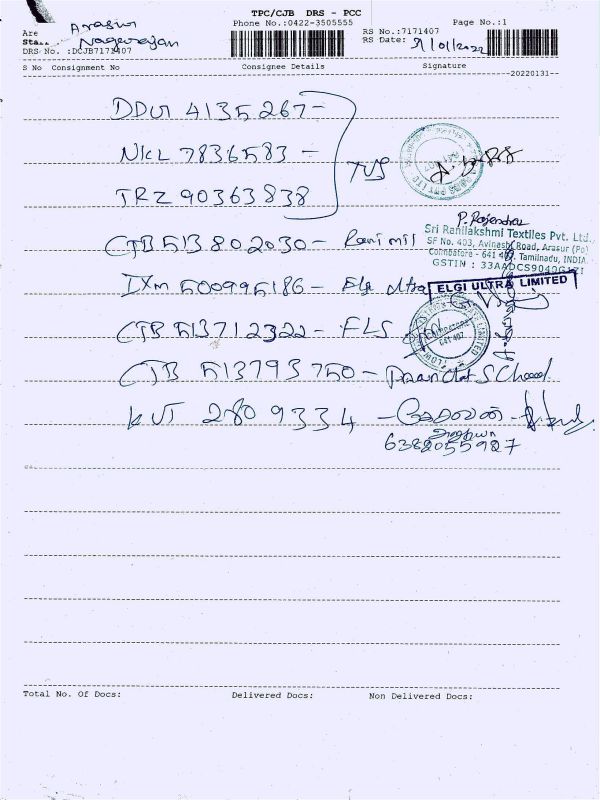 TPC/CJB DRS - PCC
Phone No.:0422-3505555
Page No.:1
Are Arasur
Sta.. Nagarajan
DRS No. :DCJB7171407
RS No.:7171407
RS Date: 31/01/2022
S No Consignment No Consignee Details Signature
20220131
DDU 4135267-
NKL 7836583 - TVS
TRZ 90363838
CTB 513802030 - Rani mil
P. Rajendran
Sri Ranilakshmi Textiles Pvt. Ltd.,
SF No. 403, Avinashi Road, Arasur (Po)
Coimbatore - 641 407. Tamilnadu, INDIA.
GSTIN : 33AADCS9040G1Z1
IXM 500995186 - Elgi Ultra
ELGI ULTRA LIMITED
CTB 513712322 - FLS
641 407
CTB 513793750 - School
KVT 2809334 -
6382055987
Total No. Of Docs: Delivered Docs: Non Delivered Docs: